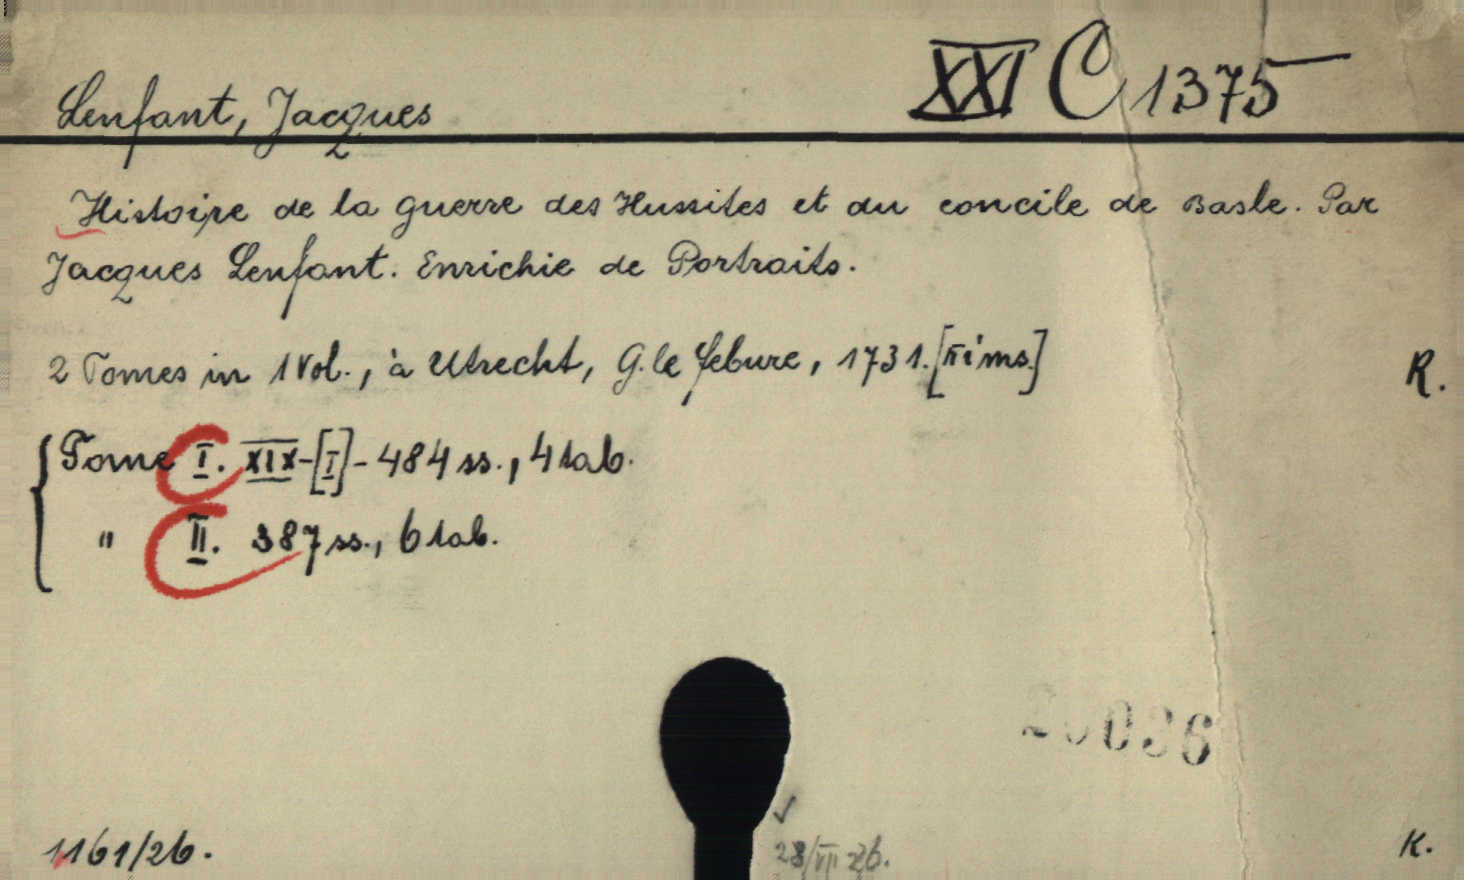 XXI C 1375
Lenfant, Jacques
Histoire de la guerre des Hussites et du concile de Basle. Par
Jacques Lenfant. Enrichie de Portraits.
2 Tomes in 1 Vol., à Utrecht, G. le Febure, 1731.
R.
Tome I. XIX-[I]-484 ss., 4 tab.
" II. 387 ss., 6 tab.
1161/26.
28/VII 26.
K.